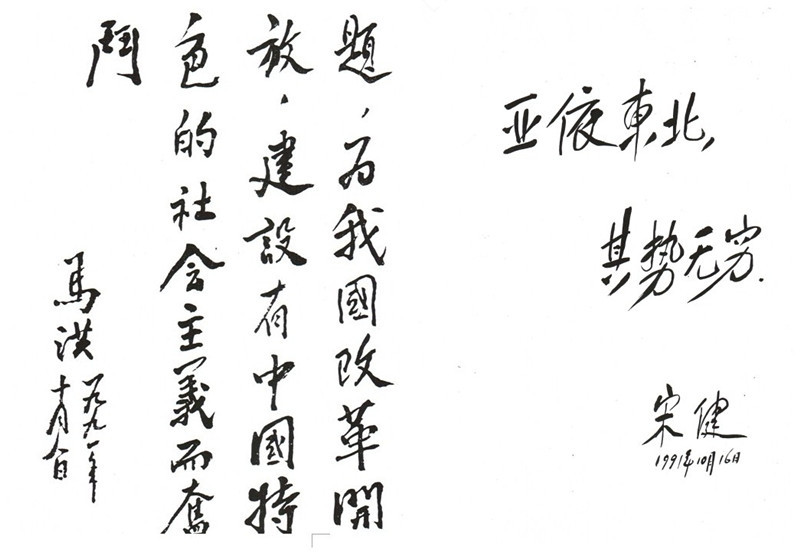 題,为我國改革開
放,建設有中國特
色的社会主義而奮
鬥
馬洪
一九九一年
十月八日
亚依東北,
其势无穷.
宋健
1991年10月16日